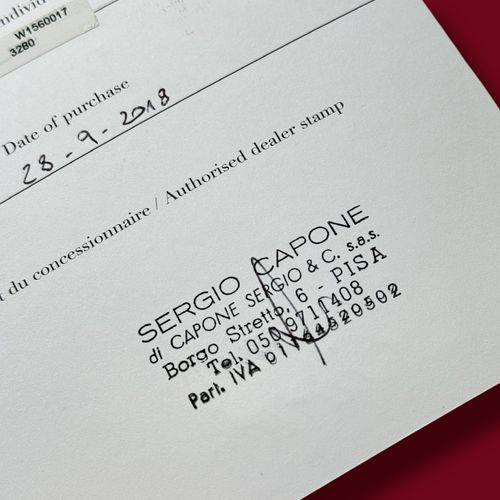 ndivid
W1560017
3280
Date of purchase
28-9-2018
t du concessionnaire / Authorised dealer stamp
SERGIO CAPONE
di CAPONE SERGIO & C. s.a.s.
Borgo Stretto, 6 - PISA
Tel. 050 9711408
Part. IVA